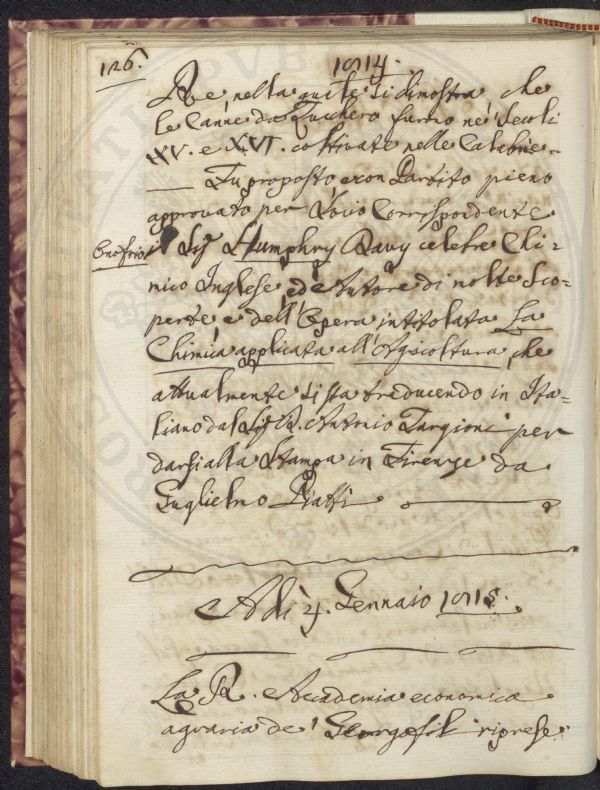 126.
1814.
Re, nella quale si dimostra che
le Canne da Zucchero furno ne' Secoli
XV. e XVI. coltivate nelle Calabrie.
— Fu proposto, e con Partito pieno
approvato per Socio Corrispondente
Onofrio il Sig. Humphry Davy celebre Chi=
mico Inglese, ed è Autore di molte Sco=
perte, e dell'Opera intitolata La
Chimica applicata all'Agricoltura, che
attualmente si sta traducendo in Ita=
liano dal Sig. D. Antonio Targioni per
darsi alla Stampa in Firenze da
Guglielmo Piatti
Adì 4. Gennaio 1815.
La R. Accademia economico
agraria de' Georgofili riprese